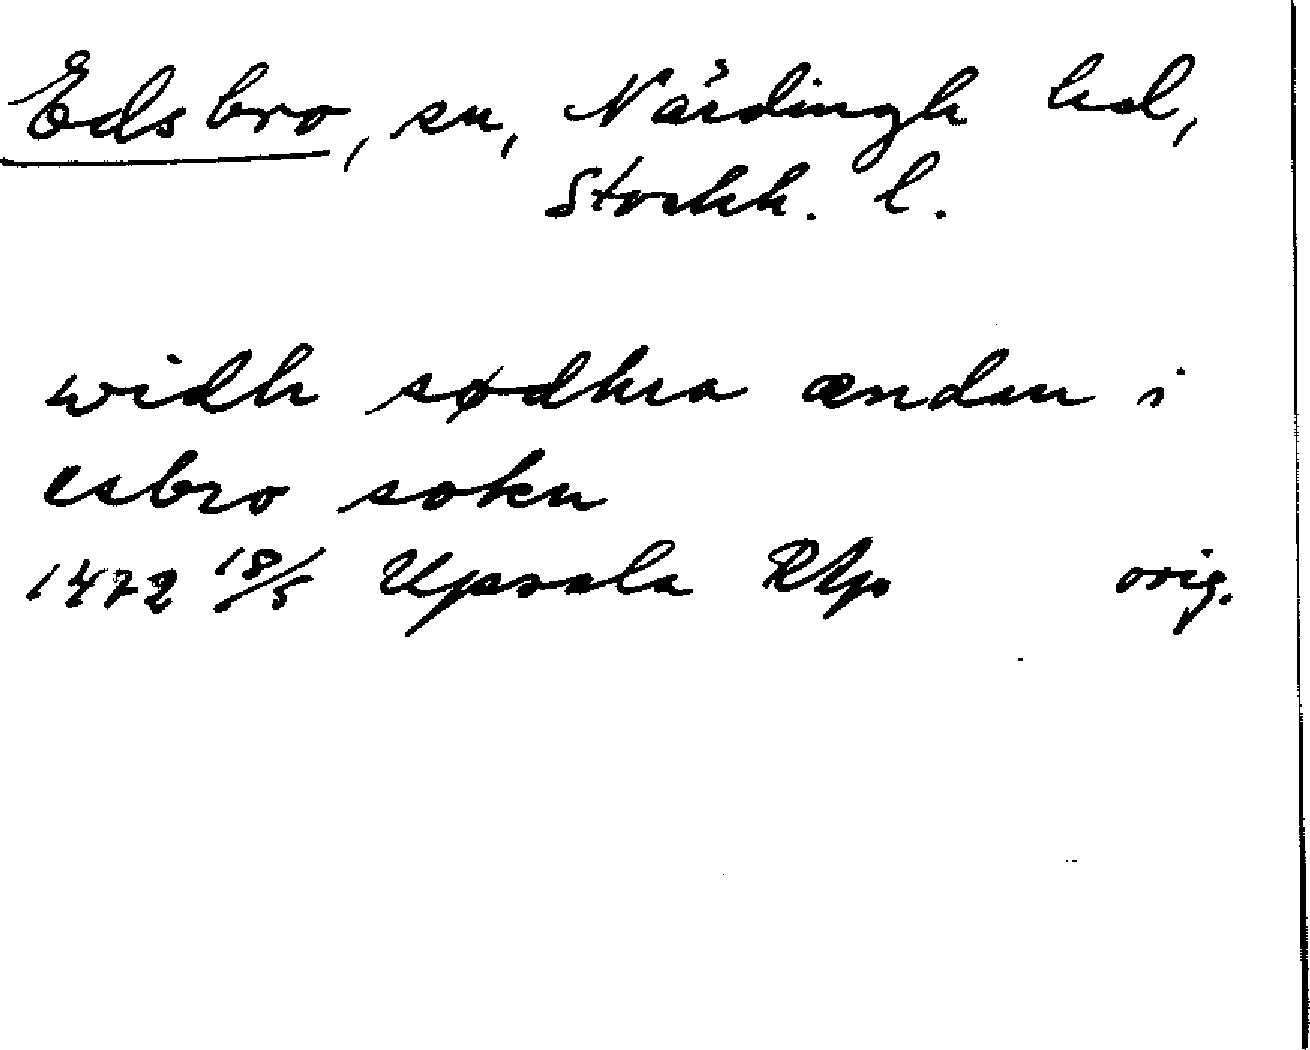 Edsbro, sn, Närdingh hd,
Stockh. l.
widh sødhra ændan i
esbro sokn
1472 18/5 Upsala RAp orig.